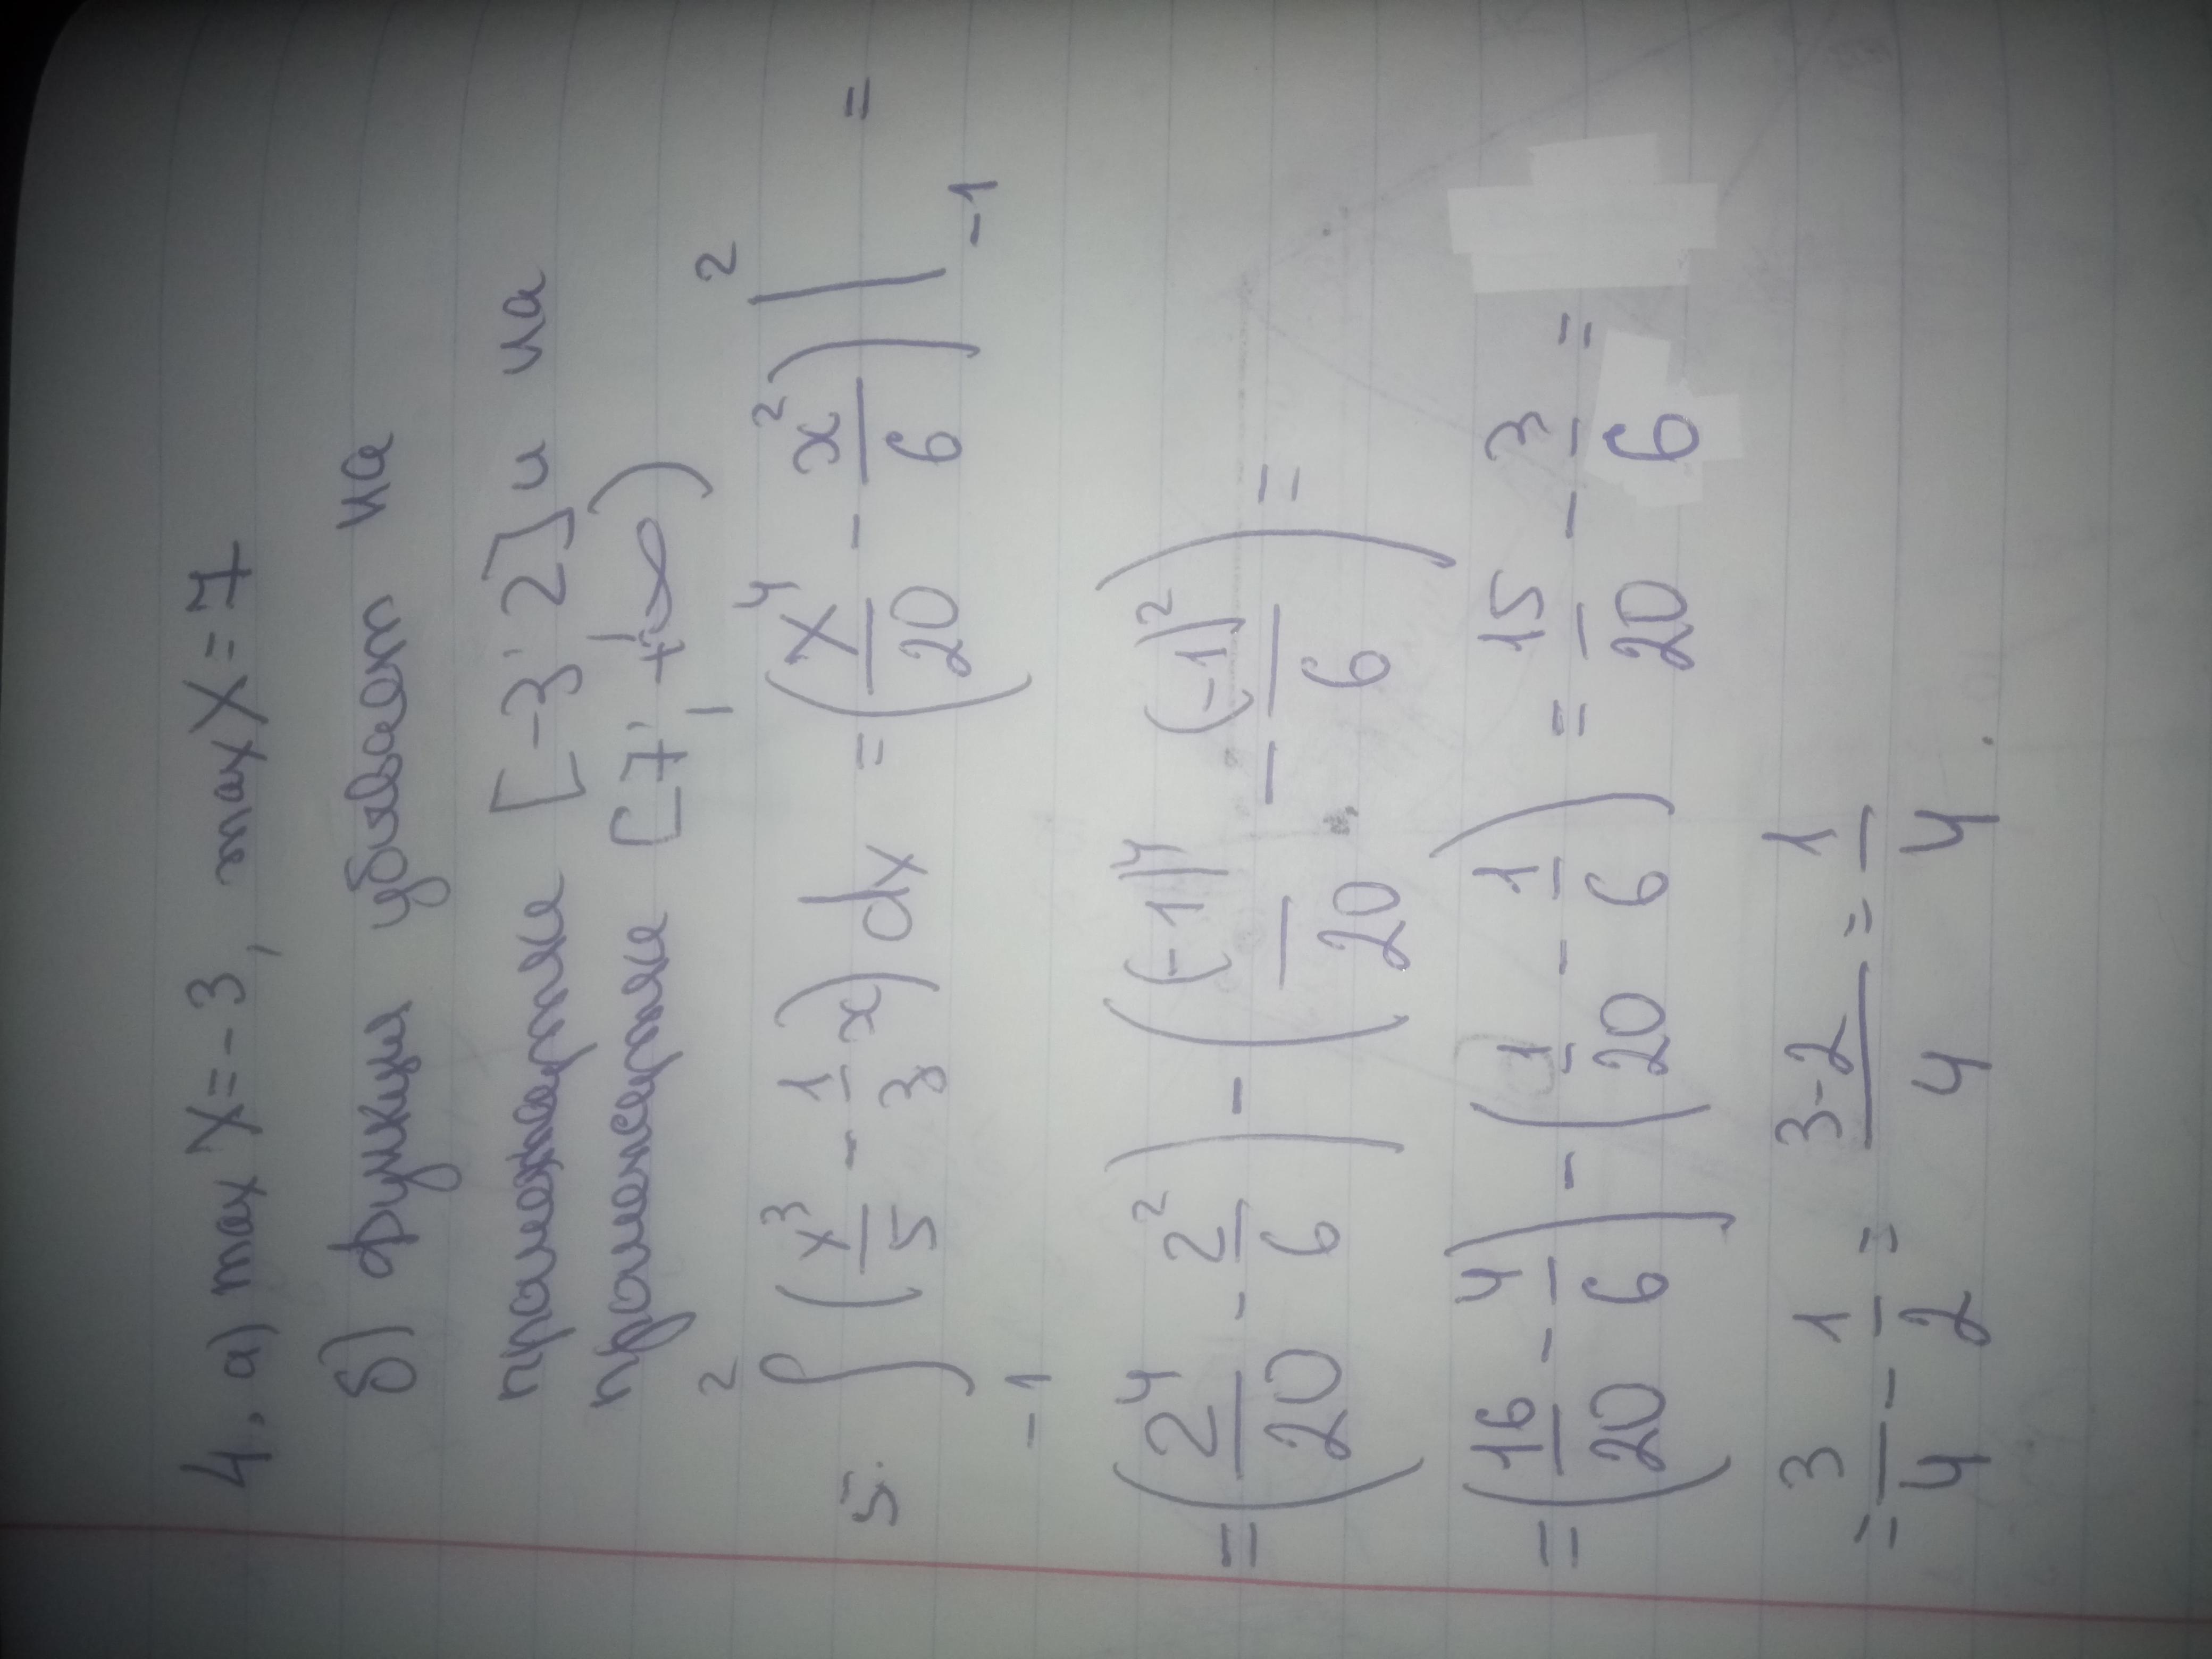 4. а) max X = -3, max X = 7
б) функция убывает на
промежутке [-3; 2] и на
промежутке [7; +∞)
5. ∫₋₁² (x³/5 - 1/3 x) dx = (x⁴/20 - x²/6) |₋₁² =
= (2⁴/20 - 2²/6) - ((-1)⁴/20 - (-1)²/6) =
= (16/20 - 4/6) - (1/20 - 1/6) = 15/20 - 3/6 =
= 3/4 - 1/2 = 3-2/4 = 1/4.